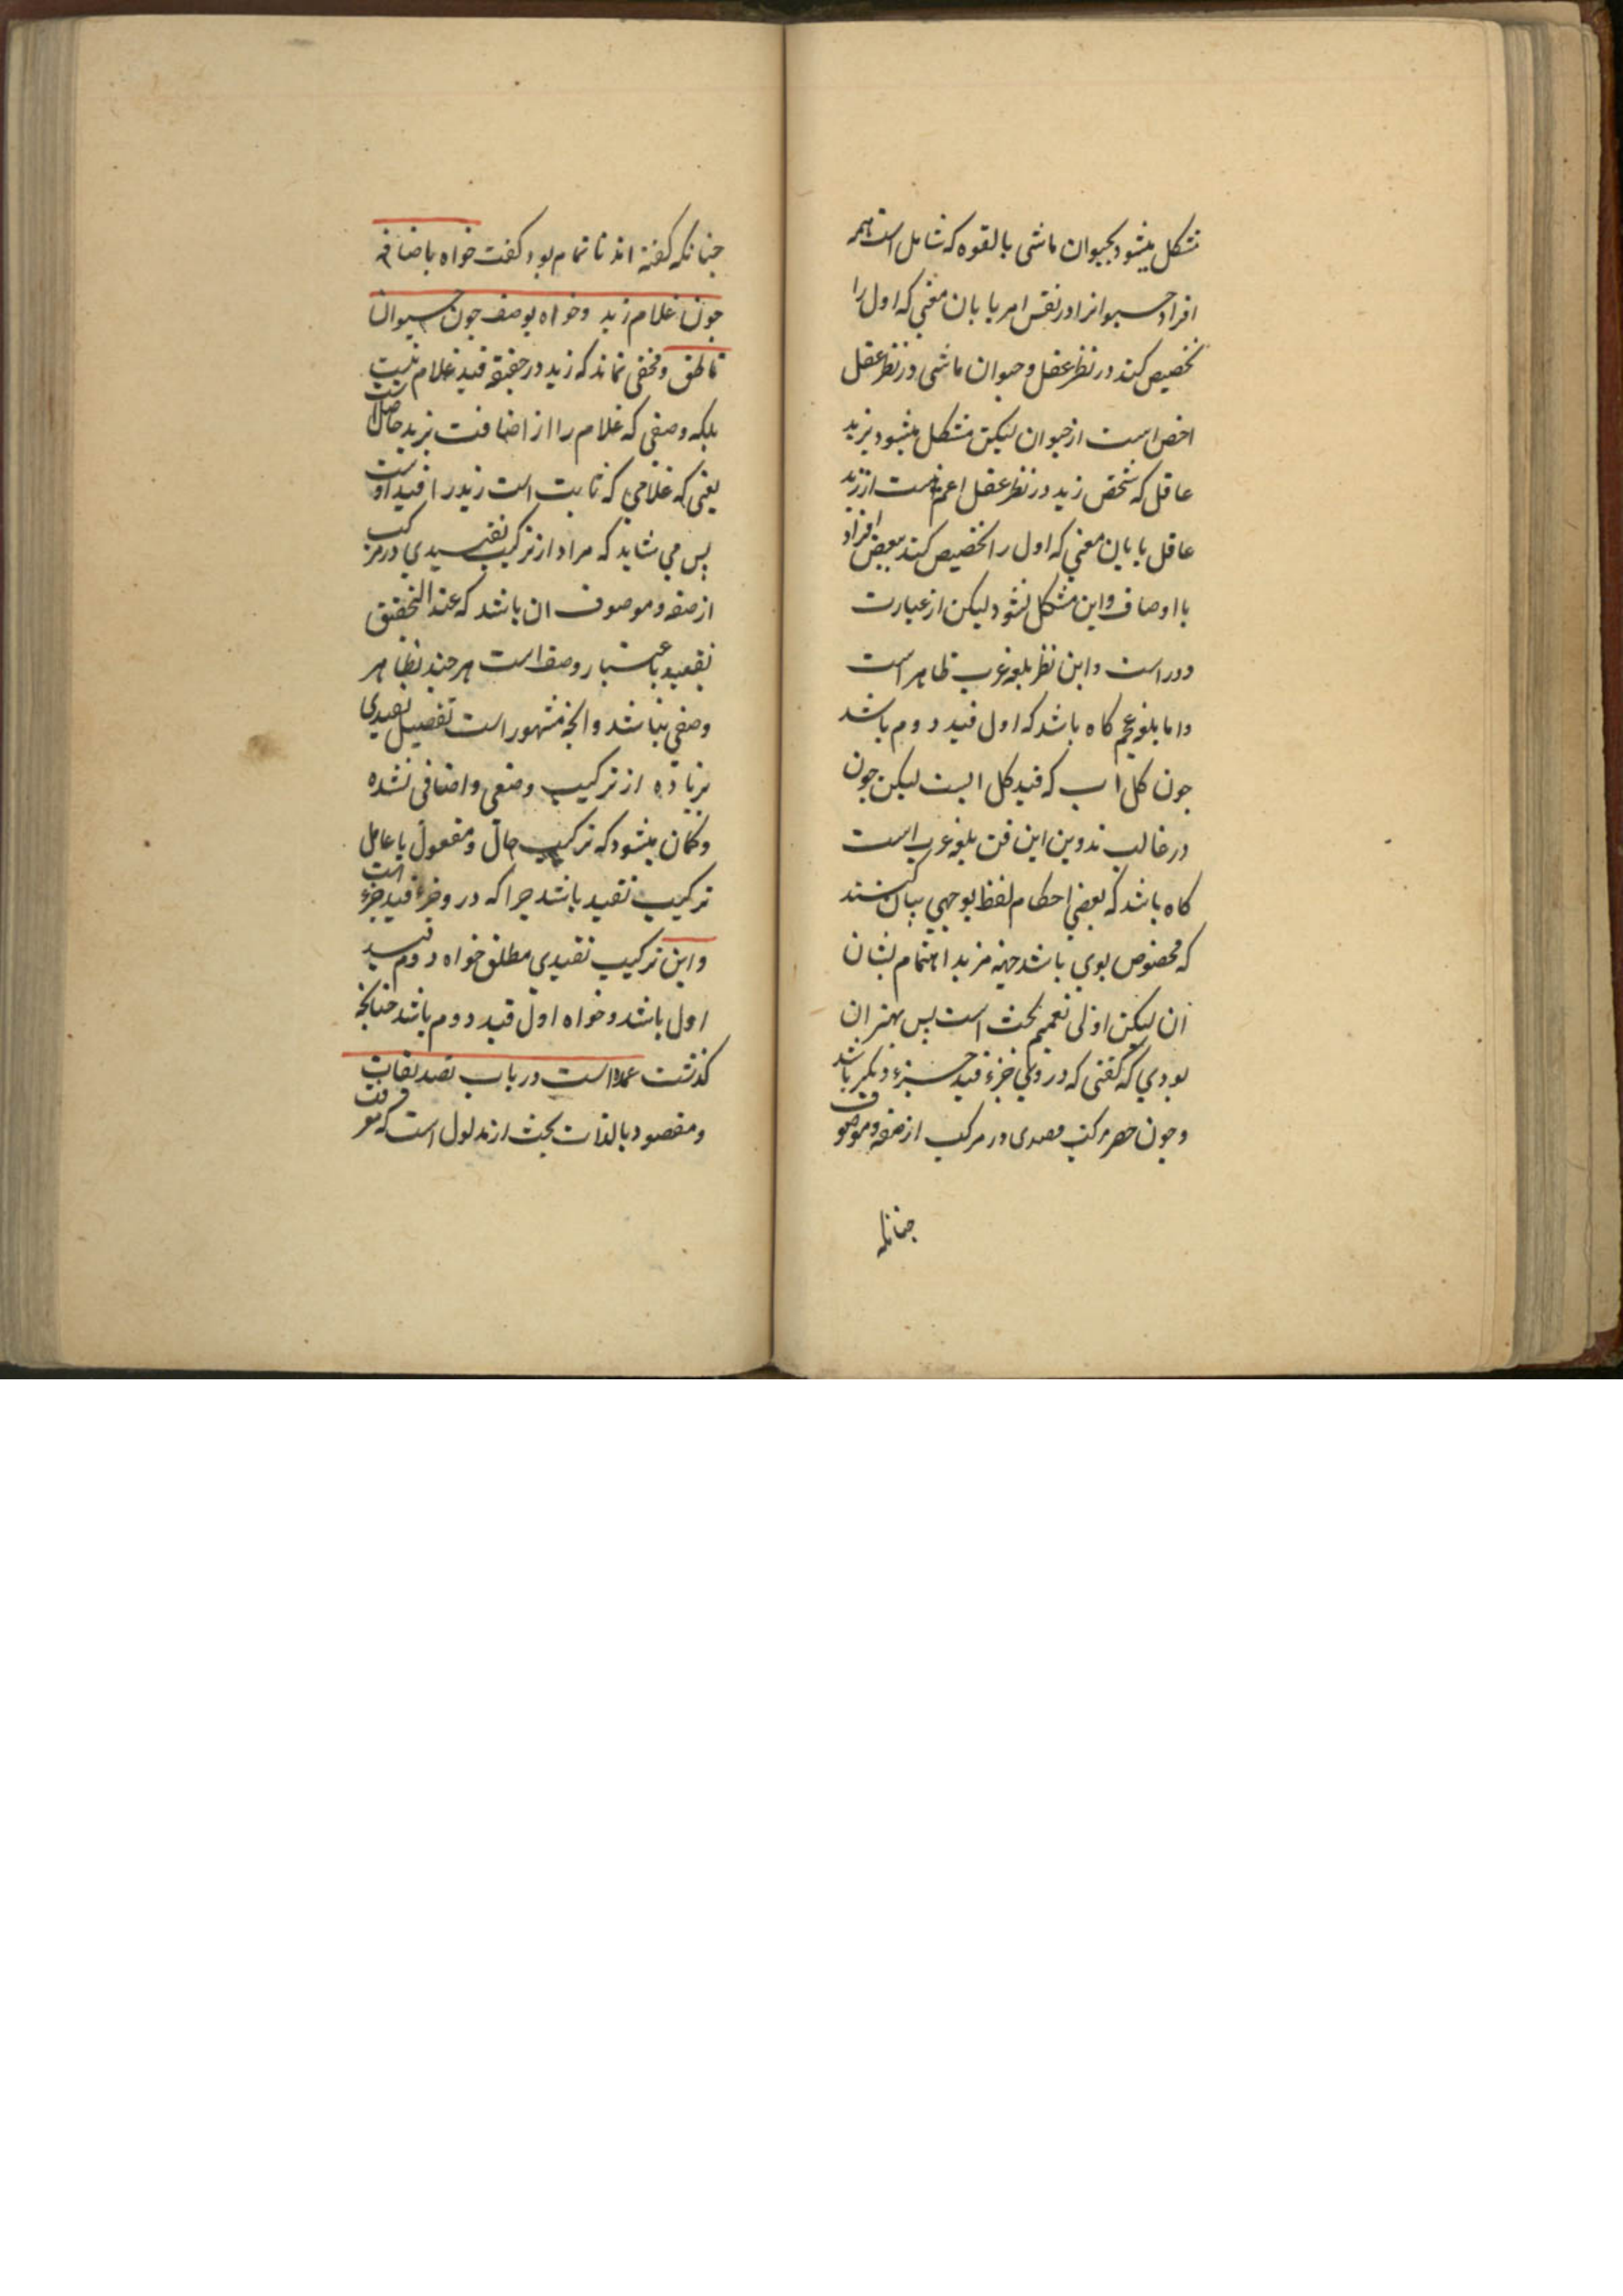 مشکل میشود بحیوان ماشی بالقوه که شامل است همه
افراد حیوانرا در نفس امر با بان معنی که اول را
تخصیص کند در نظر عقل و حیوان ماشی در نظر عقل
اخص است از حیوان لیکن مشکل میشود بزید
عاقل که شخص زید در نظر عقل اعم است از زید
عاقل با بان معنی که اول را تخصیص کند ببعض افراد
با اوصاف و این مشکل نشود لیکن از عبارت
دور است و این نظر بلغه عرب ظاهر است
واما بلغه عجم کاه باشد که اول قید دوم باشد
جون کل اب که قید کل است لیکن جون
در غالب تدوین این فن بلغه عرب است
کاه باشد که بعضی احکام لفظ بوجهی بیان کنند
که مخصوص بوی باشد جهة مزید اهتمام بشان
ان لیکن اولی تعمیم بحث است بس بهتر ان
بودی که گفتی که در وی جزء قید جزء دیکر باشد
وجون حصر مرکب تقییدی در مرکب از صفه وموصوف
جنانکه
جنانکه گفته اند ناتمام بود کفت خواه باضافه
جون غلام زید وخواه بوصف جون حیوان
ناطق ومخفی نماند که زید در حقیقة قید غلام نیست
بلکه وصفی که غلام را از اضافت بزید حاصل است
یعنی که غلامی که ثابت است زید را قید اوست
پس می شاید که مراد از ترکیب تقییدی در مرکب
از صفه وموصوف ان باشد که عند التحقیق
تقیید باعتبار وصف است هر جند بظاهر
وصفی نباشد وانجه مشهور است تفصیل تقییدی
بزیاده از ترکیب وصفی واضافی نشده
وکمان میشود که ترکیب حال ومفعول با عامل
ترکیب تقیید باشد جرا که در و جزء قید جزء است
واین ترکیب تقییدی مطلق خواه دوم قید
اول باشد وخواه اول قید دوم باشد جنانجه
کذشت عمده است در باب تصدیقات
ومقصود بالذات بحث از مدلول است که معرفت